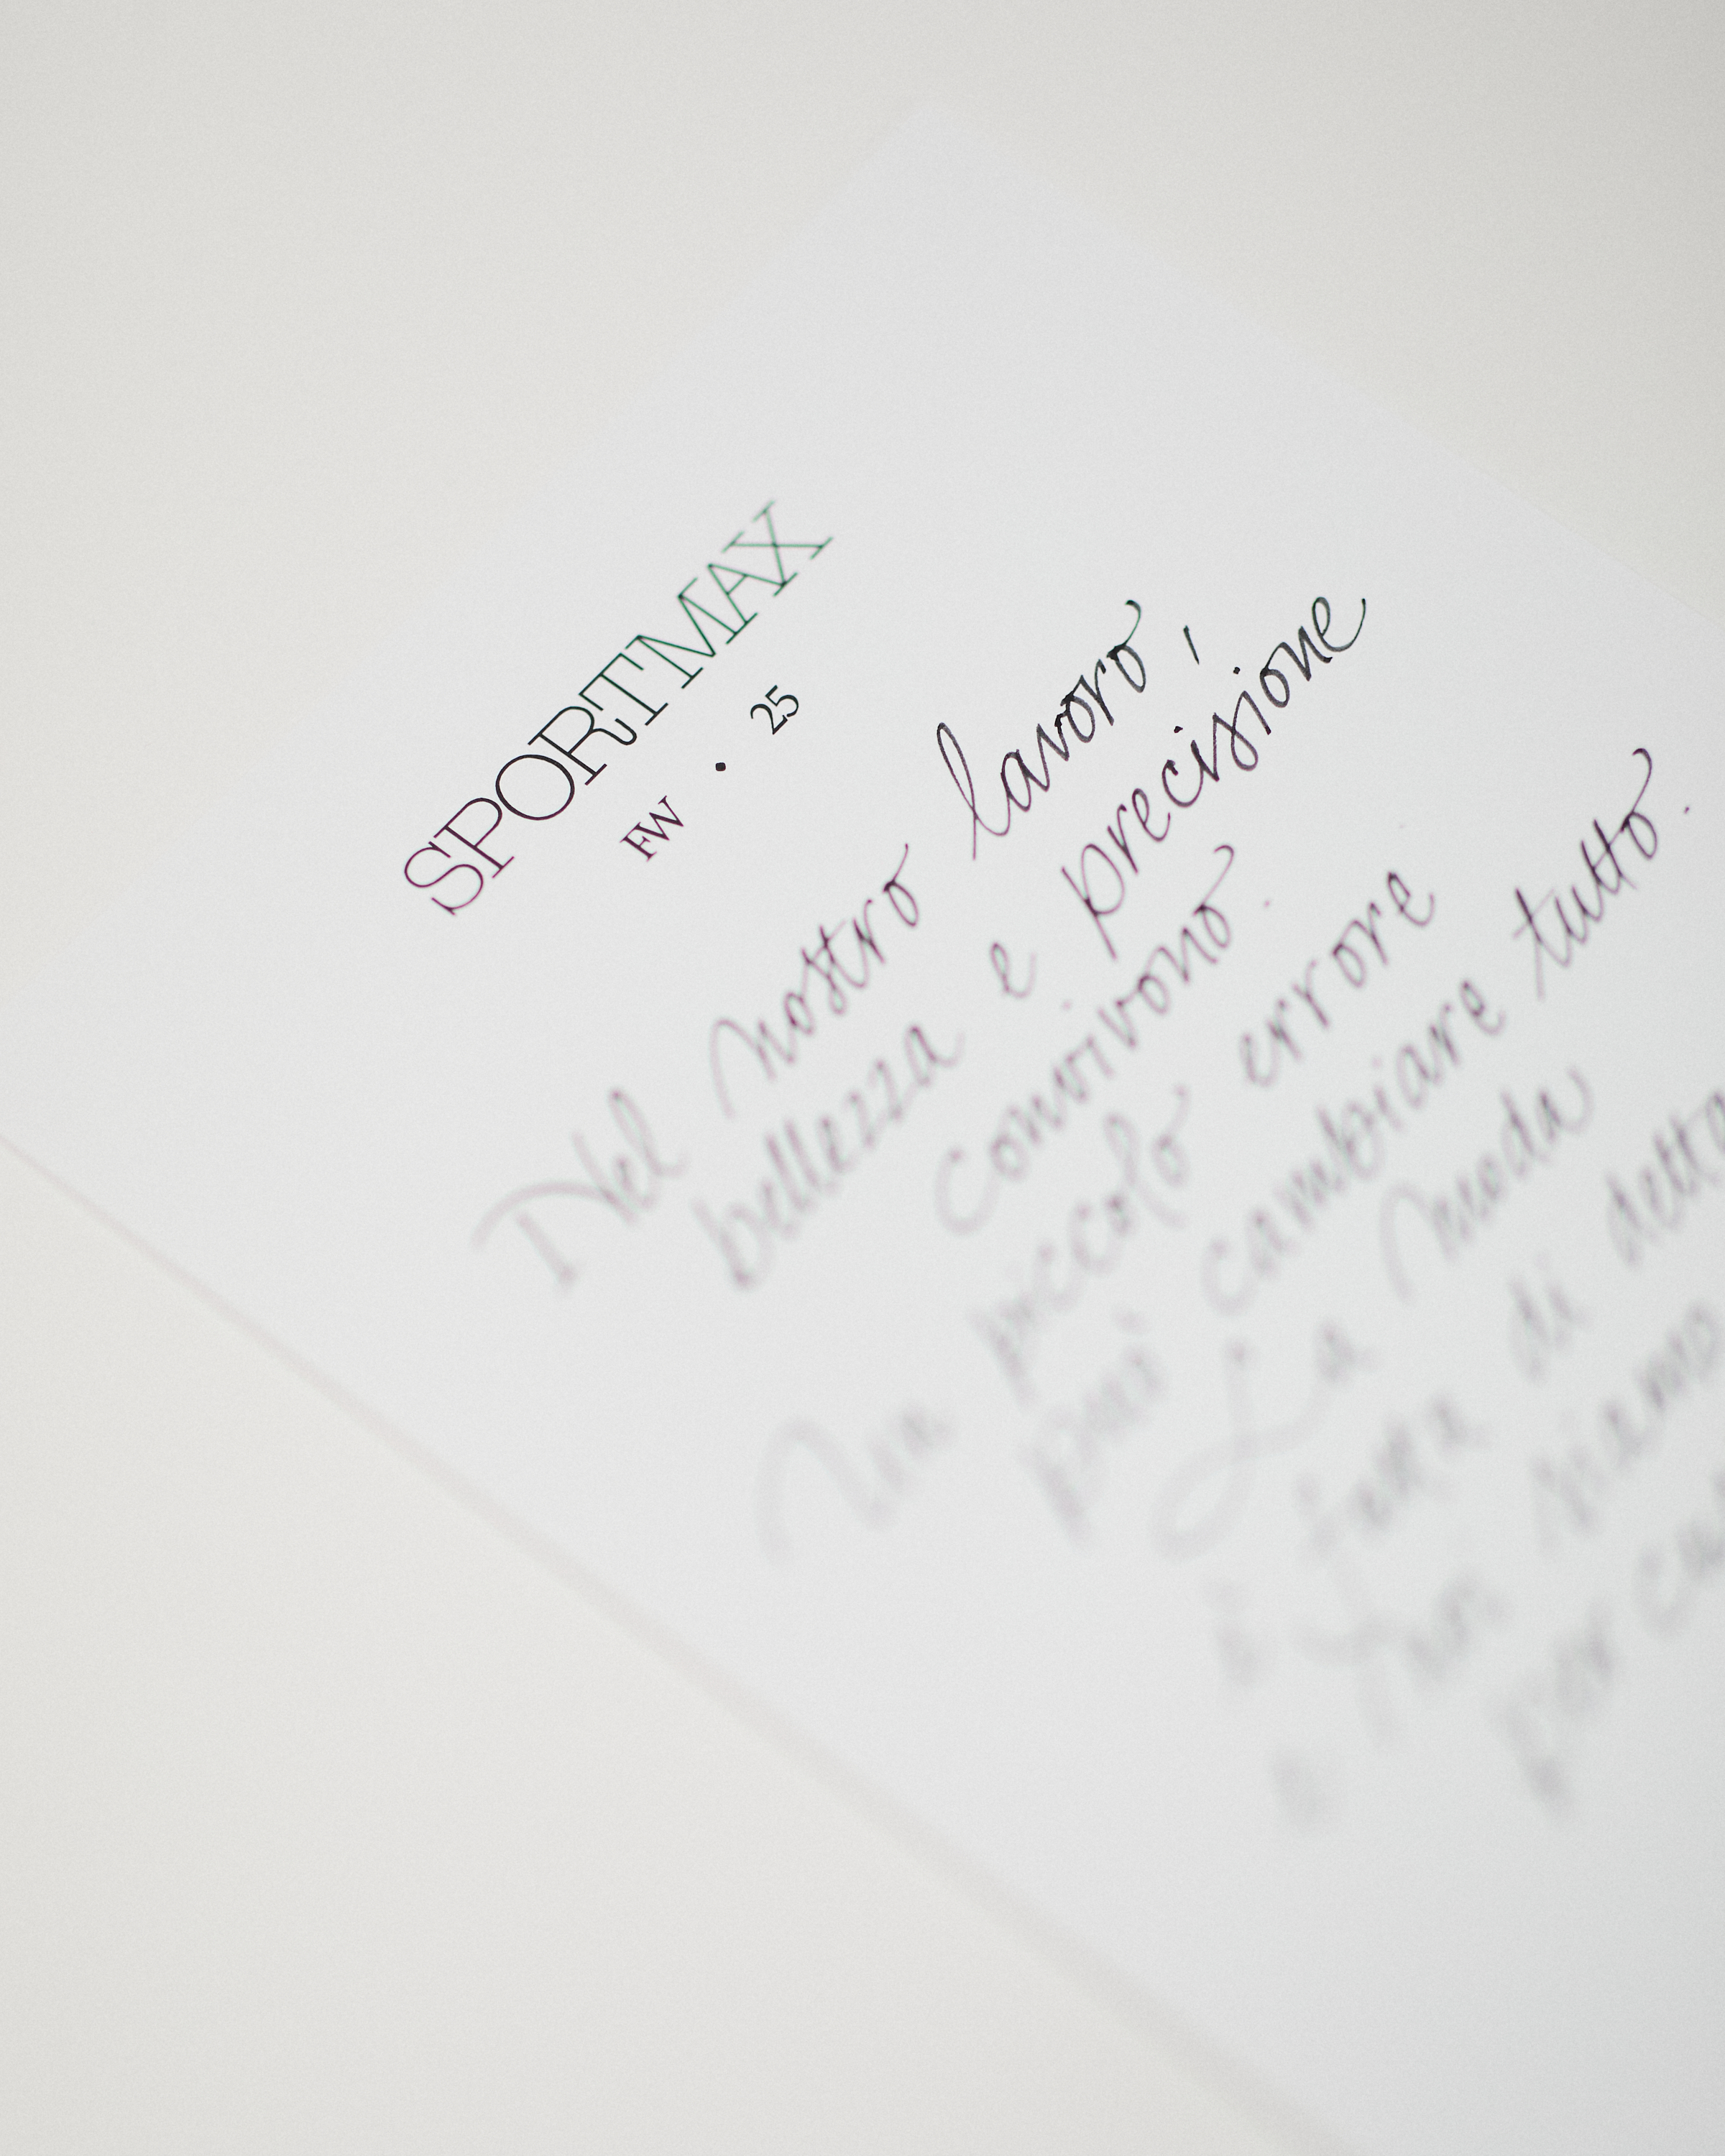 SPORTMAX
FW · 25
Nel nostro lavoro,
bellezza e precisione
convivono.
Un piccolo errore
può cambiare tutto.
La moda
è fatta di detta
e non siamo
per